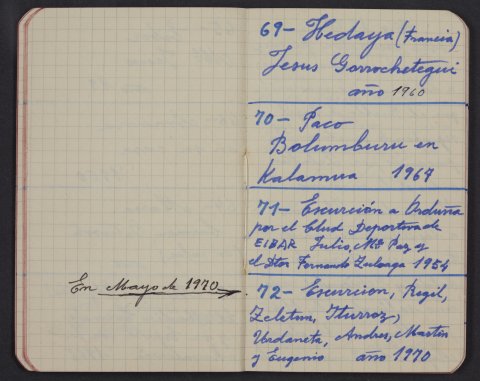 69- Hedaya (Francia)
Jesus Gorrochetegui
año 1960
70- Paco
Bolumburu en
Kalamua 1967
71- Escurción a Orduña
por el Club Deportivo de
EIBAR Julio, Mª Paz y
el Dtor Fernando Zuloaga 1954
En Mayo de 1970
72- Escurcion, Regil,
Zeletun, Iturroz,
Urdaneta, Andres, Martin
y Eugenio año 1970